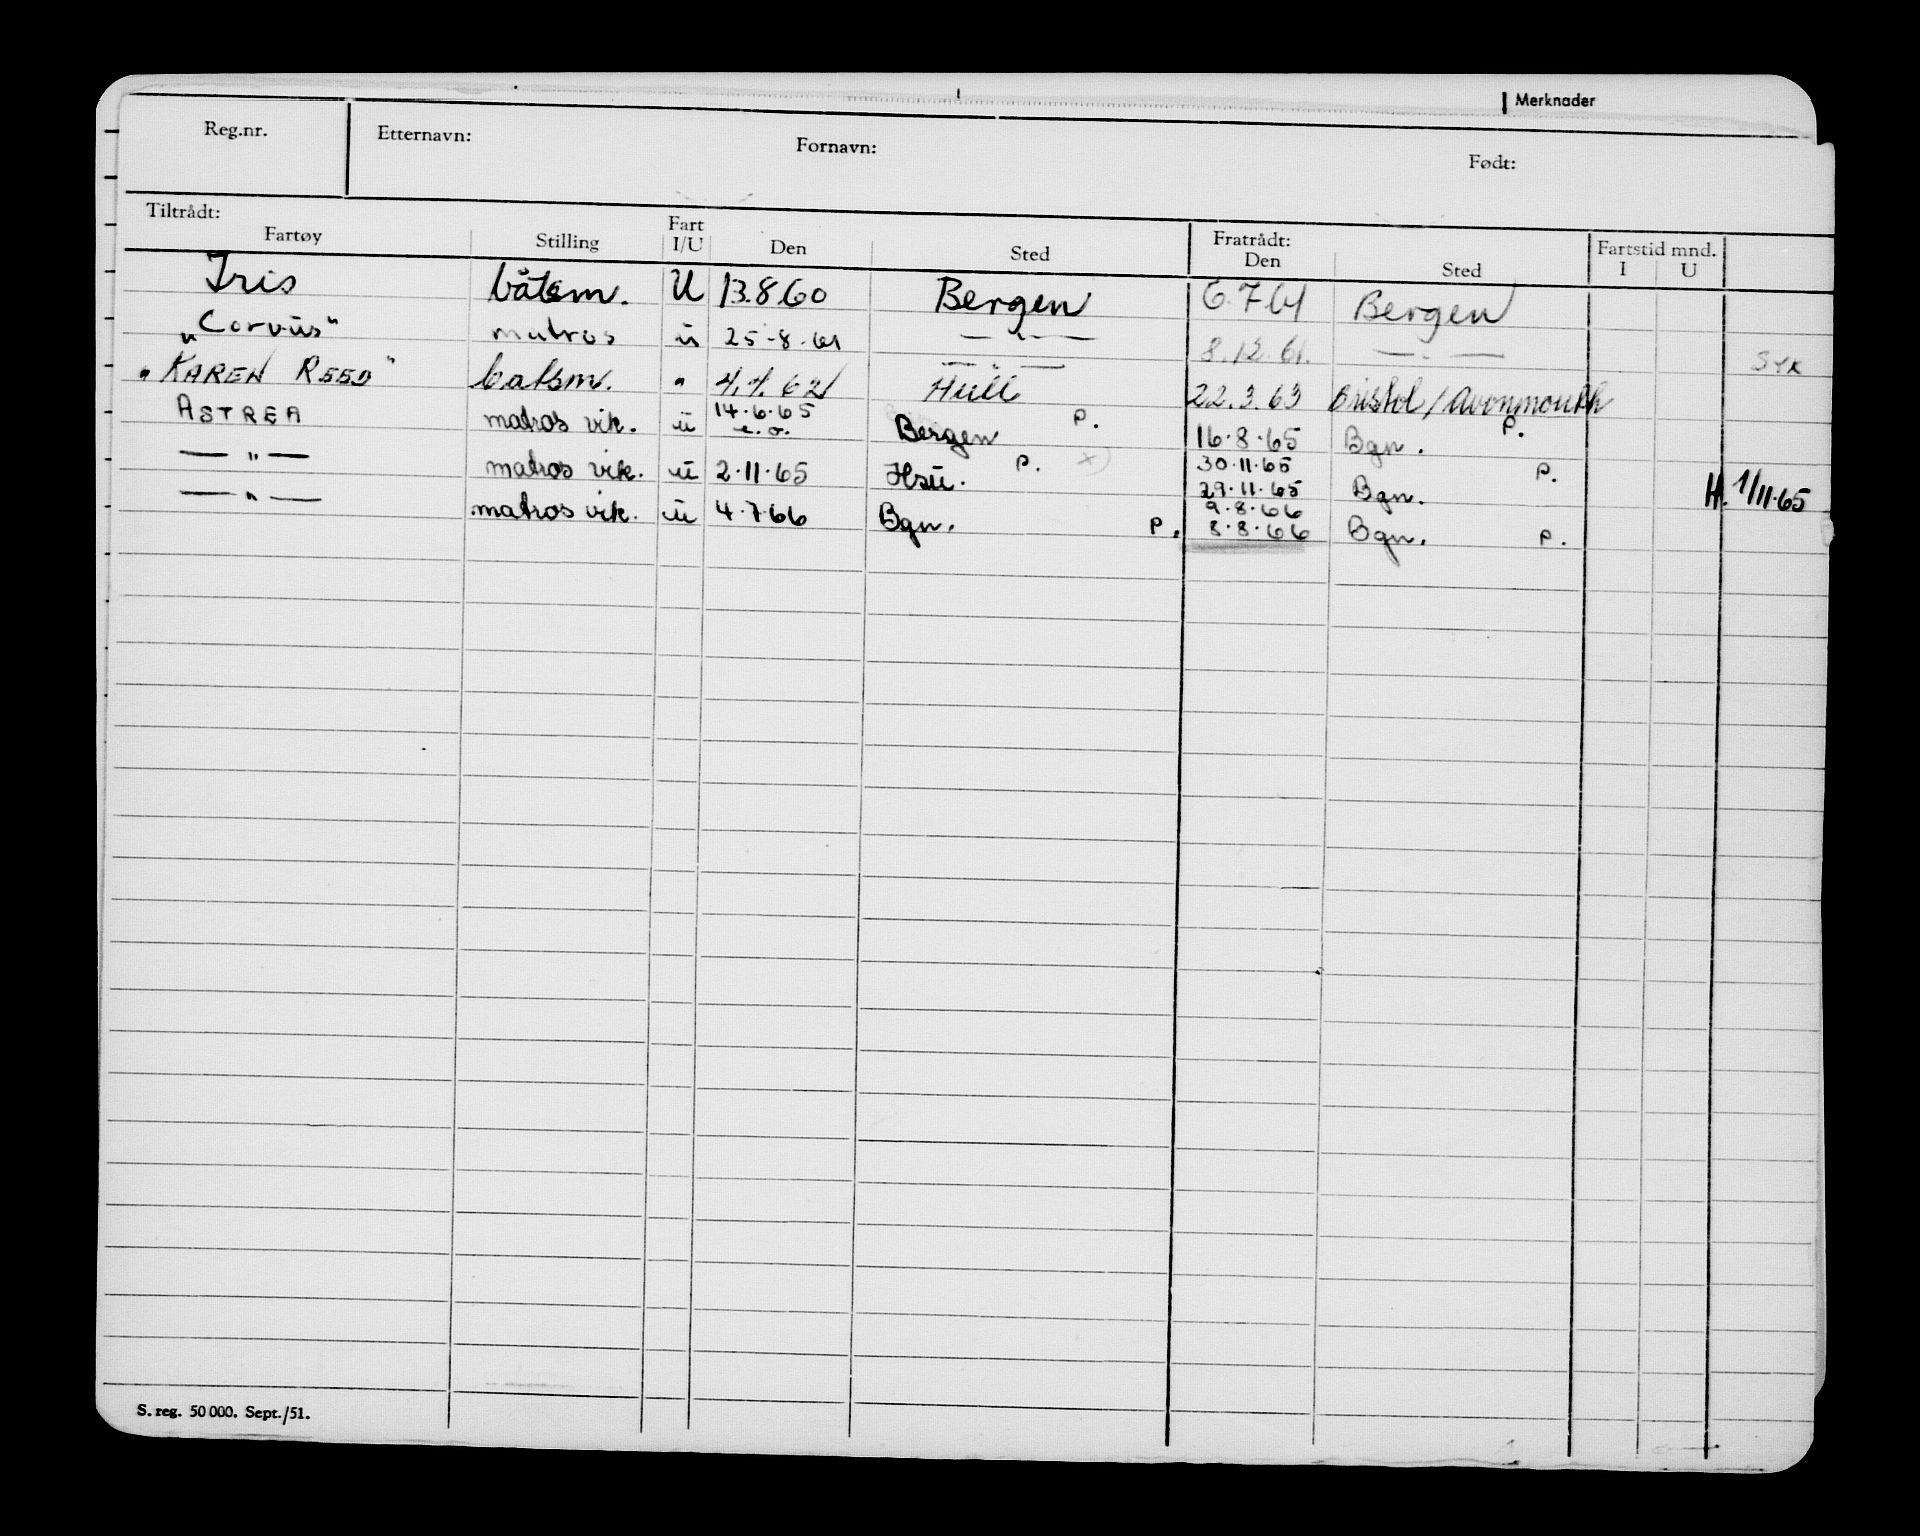 Merknader
Reg.nr. Etternavn: Fornavn: Født:
Tiltrådt: Fratrådt: Fartstid mnd.
Fartøy Stilling Fart I/U Den Sted Den Sted I U
Iris båtsm. U 13.8.60 Bergen 6.7.61 Bergen
"Corvus" matros u 25-8-61 — " — 8.12.61. — " — SYK
"KAREN REED" batsm. " 4.1.62 Hull 22.3.63 Bristol/Avonmouth
ASTREA matros vik. u 14.6.65 e.o. Bergen P. 16.8.65 Bgn. P.
— " — matros vik. u 2.11.65 Hsu. P. x) 30.11.65 29.11.65 Bgn. P. H. 1/11.65
— " — matros vik. u 4.7.66 Bgn. P. 9.8.66 8.8.66 Bgn. P.
S. reg. 50 000. Sept./51.